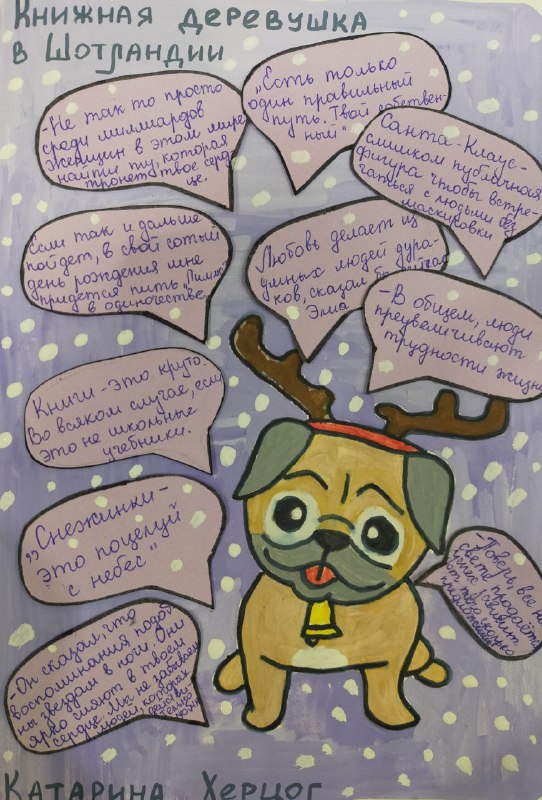 Книжная деревушка
в Шотландии
-Не так то просто
среди миллиардов
женщин в этом мире
найти ту, которая
тронет твое серд-
це.
„Есть только
один правильный
путь. Твой собствен-
ный"
Санта-Клаус-
слишком публичная
фигура чтобы встре-
чаться с людьми без
маскировки
Если так и дальше
пойдет, в свой сотый
день рождения мне
придется пить
в одиночестве.
Любовь делает из
умных людей дура-
ков, сказал бы
Эмо
-В общем, люди
преувеличивают
трудности жизни
Книги-это круто.
Во всяком случае, если
это не школьные
учебники.
„Снежинки-
это поцелуй
с небес"
-Он сказал, что
воспоминания подоб
ны звездам в ночи. Они
ярко сияют в твоем
сердце. Мы не забываем
людей, которых
-Поверь, все на
свете
от
Катарина Херцог